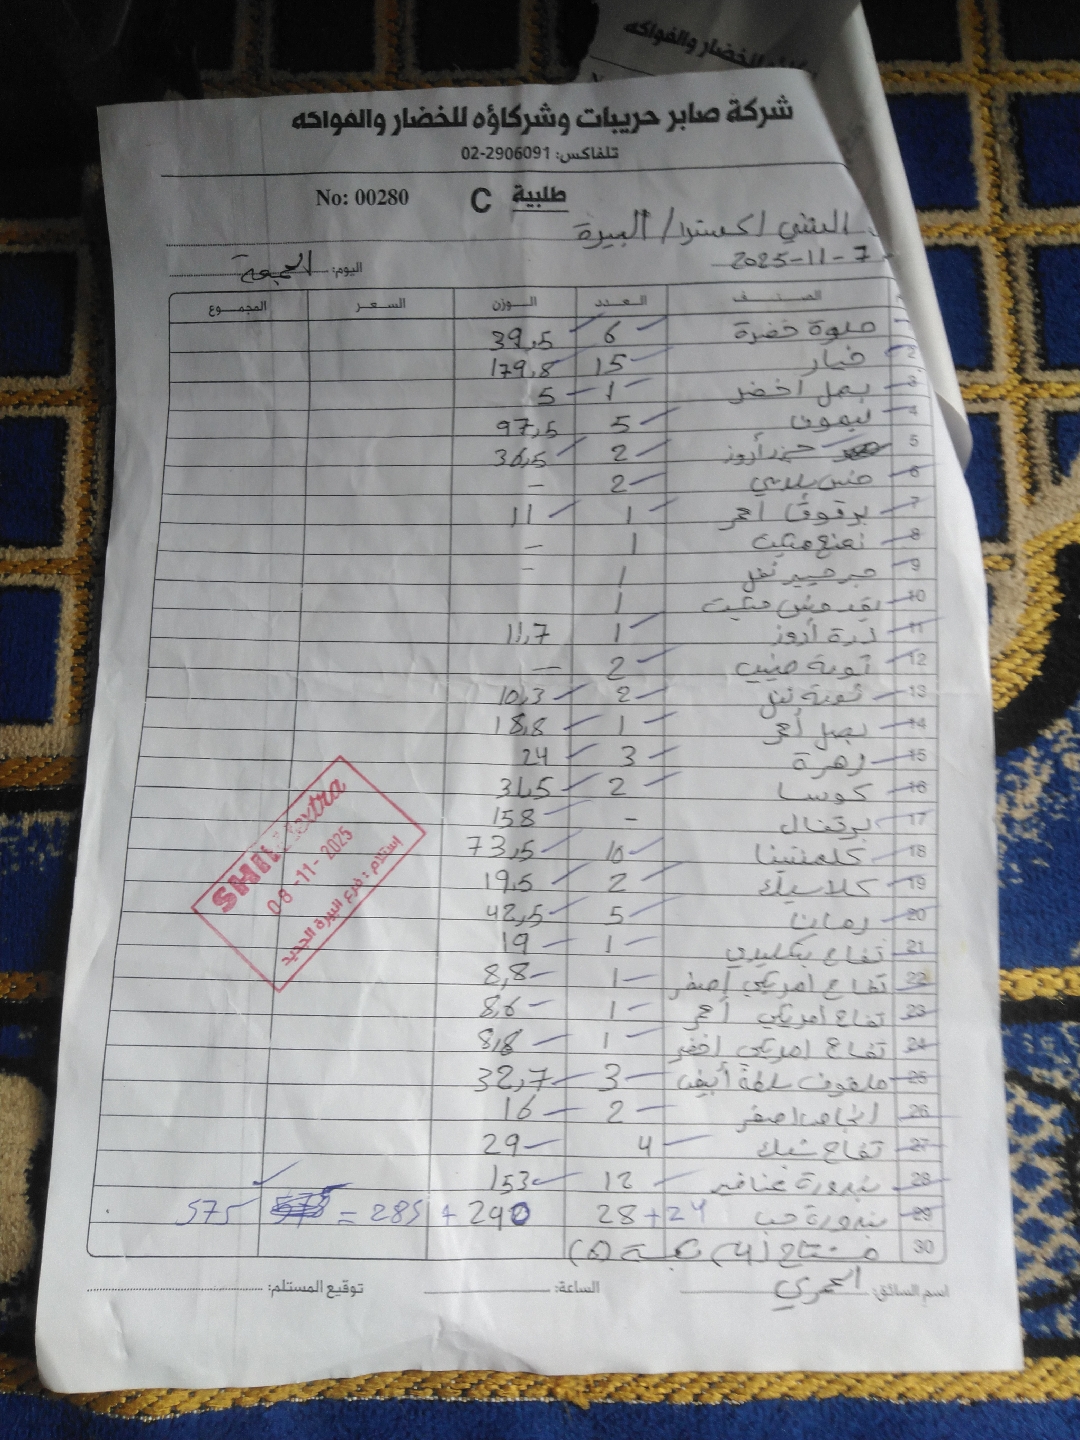 شركة صابر حريبات وشركاؤه للخضار والفواكه
تلفاكس: 02-2906091
طلبية C No: 00280
الشني اكسترا / البيرة
2025-11-7 اليوم: الجمعة
الصنف العدد الوزن السعر المجموع
حلوة خضرة 6 39,5
2 خيار 15 179,8
3 بصل اخضر 1 5
4 ليمون 5 97,5
5 جزر أروز 2 36,5
6 خس بلدي 2 -
7 برقوق أحمر 1 11
8 نعنع 1 -
9 جرجير نخل 1 -
10 بقدونس 1
11 ذرة أروز 1 11,7
12 2 -
13 2 10,3
14 بصل أحمر 1 18,8
15 زهرة 3 24
16 كوسا 2 31,5
17 برتقال - 158
18 كلمنتينا 10 73,5
19 كلاسيك 2 19,5
20 رمان 5 42,5
21 تفاح سكليدي 1 19
22 تفاح امريكي اصفر 1 8,8
23 تفاح امريكي أحمر 1 8,6
24 تفاح امريكي اخضر 1 8,8
25 ملفوف سلطة أبيض 3 32,7
26 اجاص اصفر 2 16
27 تفاح 4 29
28 بندورة عناقيد 12 153
29 بندورة حب 28 + 24 290 + 285 = 575
30
اسم السائق: العمري الساعة: توقيع المستلم:
SHINI extra
08-11-2025
إستلام: فرع البيرة الجديد